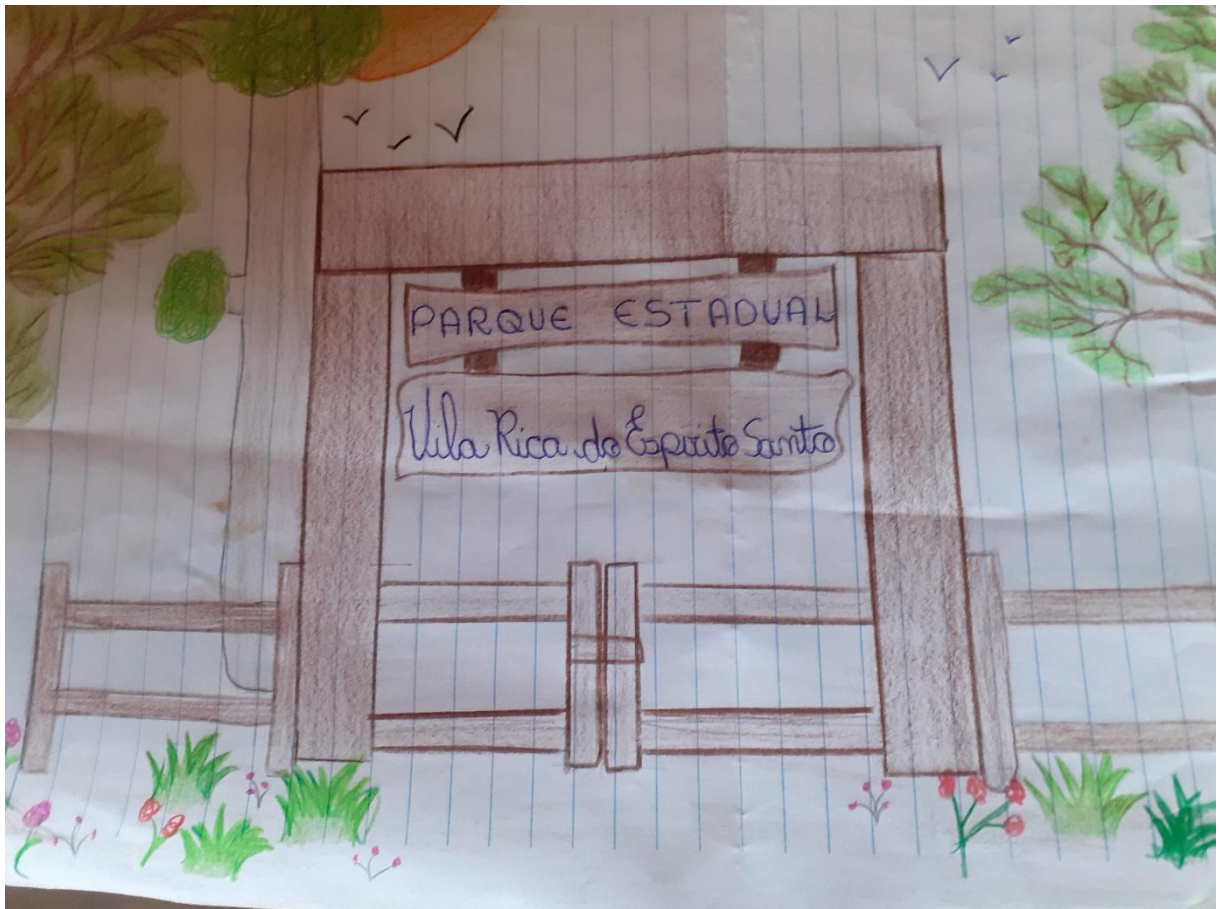 PARQUE ESTADUAL
Vila Rica do Espirito Santo